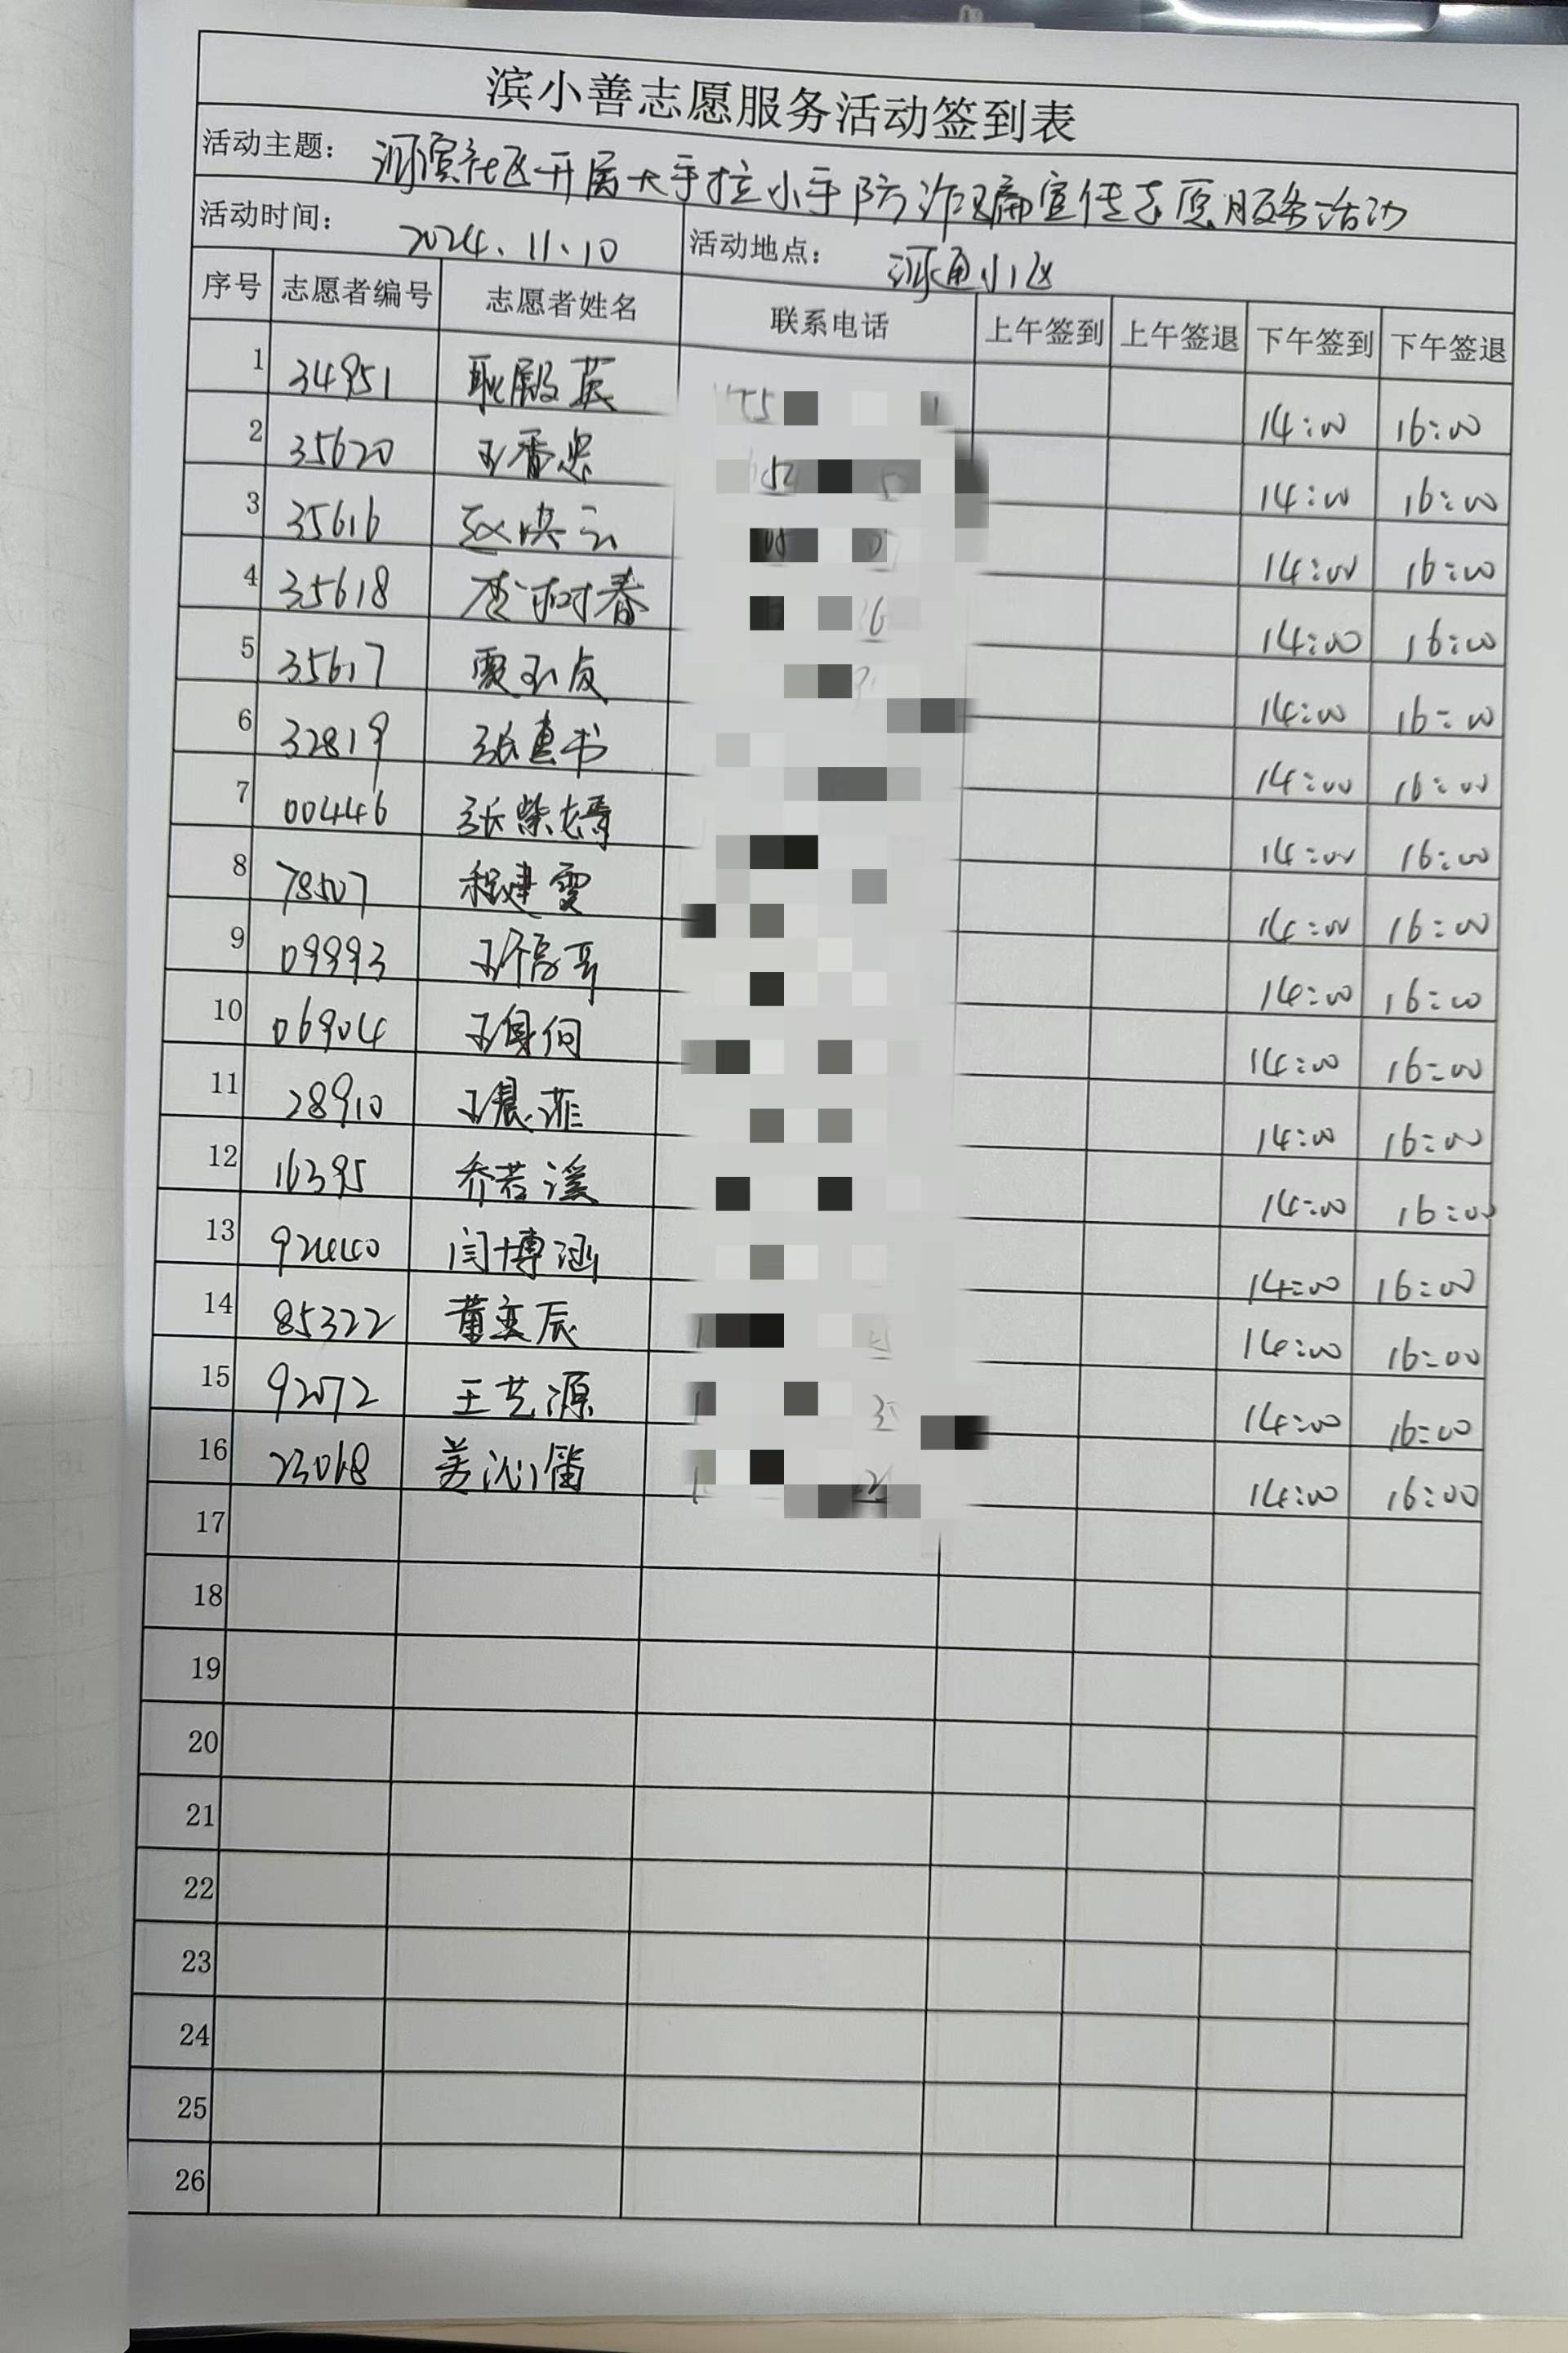 滨小善志愿服务活动签到表
活动主题： 河滨社区开展大手拉小手防诈骗宣传志愿服务活动
活动时间： 2024.11.10 活动地点： 河通小区
序号 志愿者编号 志愿者姓名 联系电话 上午签到 上午签退 下午签到 下午签退
1 34951 耿殿英 14:00 16:00
2 35620 王香忠 14:00 16:00
3 35616 赵洪云 14:00 16:00
4 35618 李树春 14:00 16:00
5 35617 贾玉友 14:00 16:00
6 32819 张惠书 14:00 16:00
7 004446 张紫嫣 14:00 16:00
8 78507 程建雯 14:00 16:00
9 09993 14:00 16:00
10 06904 14:00 16:00
11 28910 王晨菲 14:00 16:00
12 16395 乔若溪 14:00 16:00
13 92440 闫博涵 14:00 16:00
14 85322 董奕辰 14:00 16:00
15 92072 王艺源 14:00 16:00
16 23068 姜沁笛 14:00 16:00
17
18
19
20
21
22
23
24
25
26